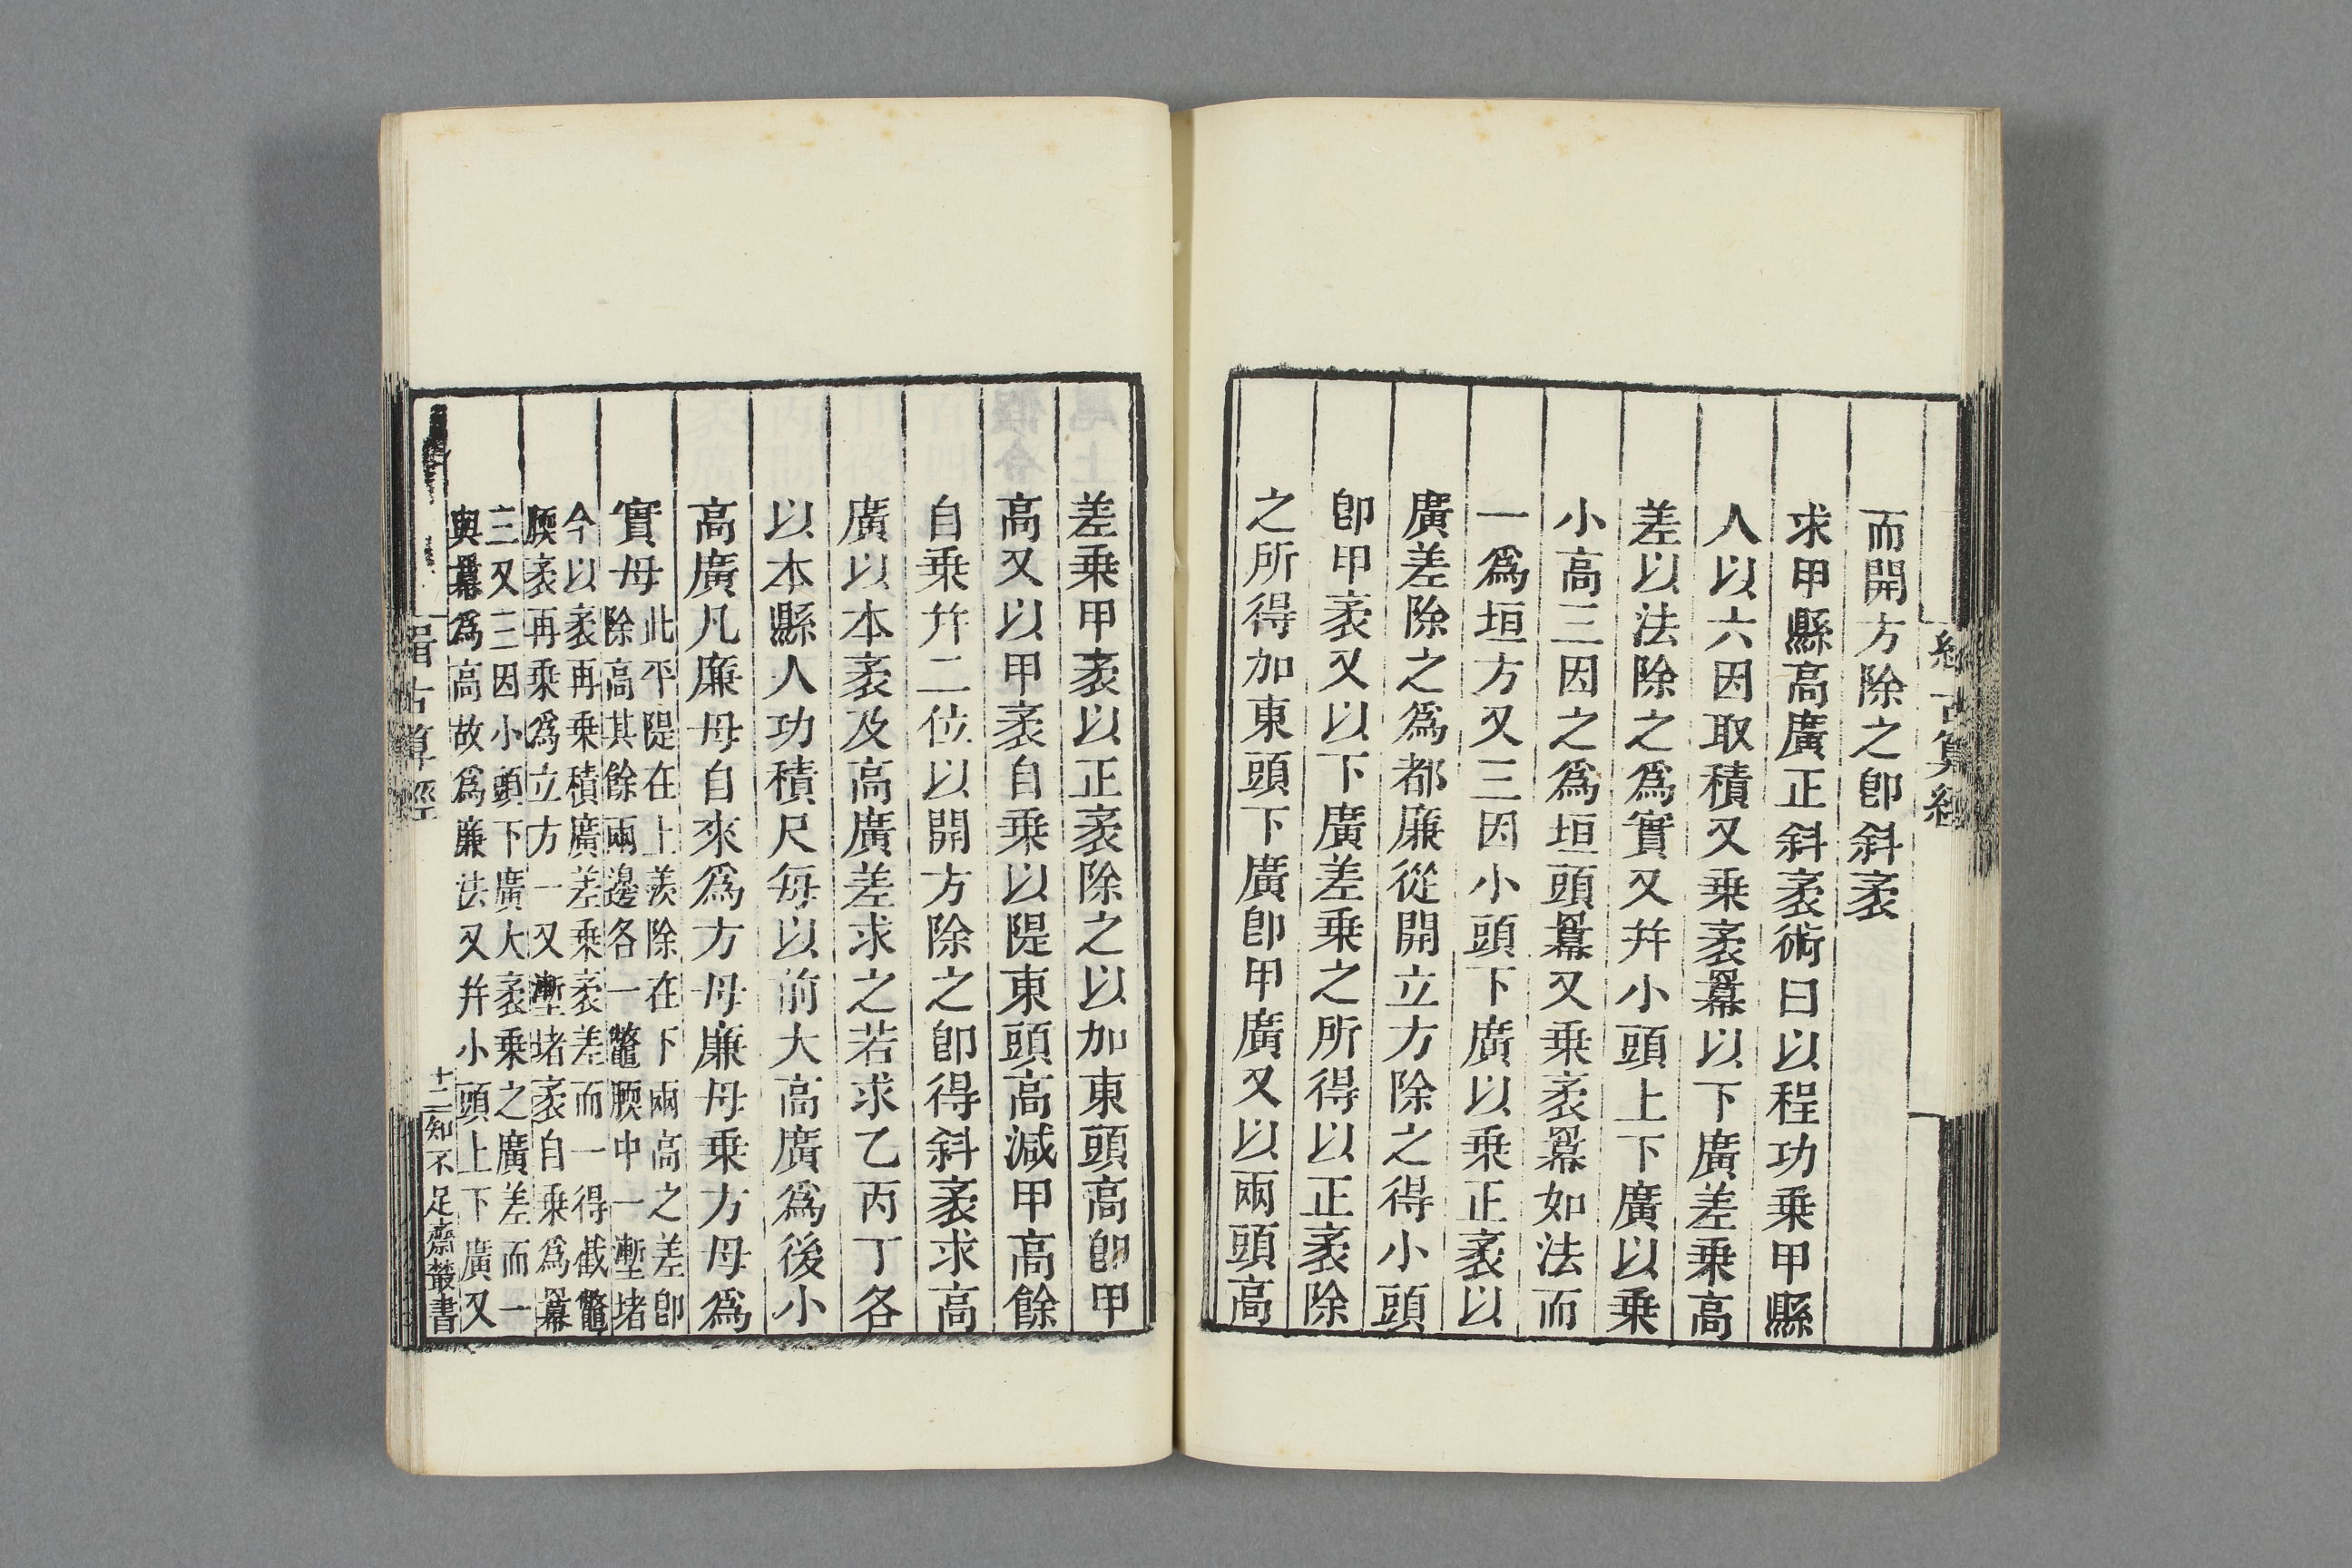 緝古算經
而開方除之卽斜袤
求甲縣高廣正斜袤術曰以程功乗甲縣
人以六因取積又乗袤羃以下廣差乗高
差以法除之爲實又幷小頭上下廣以乗
小高三因之爲垣頭羃又乗袤羃如法而
一爲垣方又三因小頭下廣以乗正袤以
廣差除之爲都廉從開立方除之得小頭
卽甲袤又以下廣差乗之所得以正袤除
之所得加東頭下廣卽甲廣又以兩頭高
差乗甲袤以正袤除之以加東頭高卽甲
高又以甲袤自乗以隄東頭高減甲高餘
自乗幷二位以開方除之卽得斜袤求高
廣以本袤及高廣差求之若求乙丙丁各
以本縣人功積尺每以前大高廣爲後小
高廣凡廉母自來爲方母廉母乗方母爲
實母
此平隄在上羨除在下兩高之差卽
除高其餘兩邊各一鼈腝中一塹堵
今以袤再乗積廣差乗袤差而一得截鼈
腝袤再乗爲立方一又塹堵袤自乗爲羃
三又三因小頭下廣大袤乗之廣差而一
與羃爲高故爲廉法又幷小頭上下廣又
緝古算經
十二
知不足齋叢書